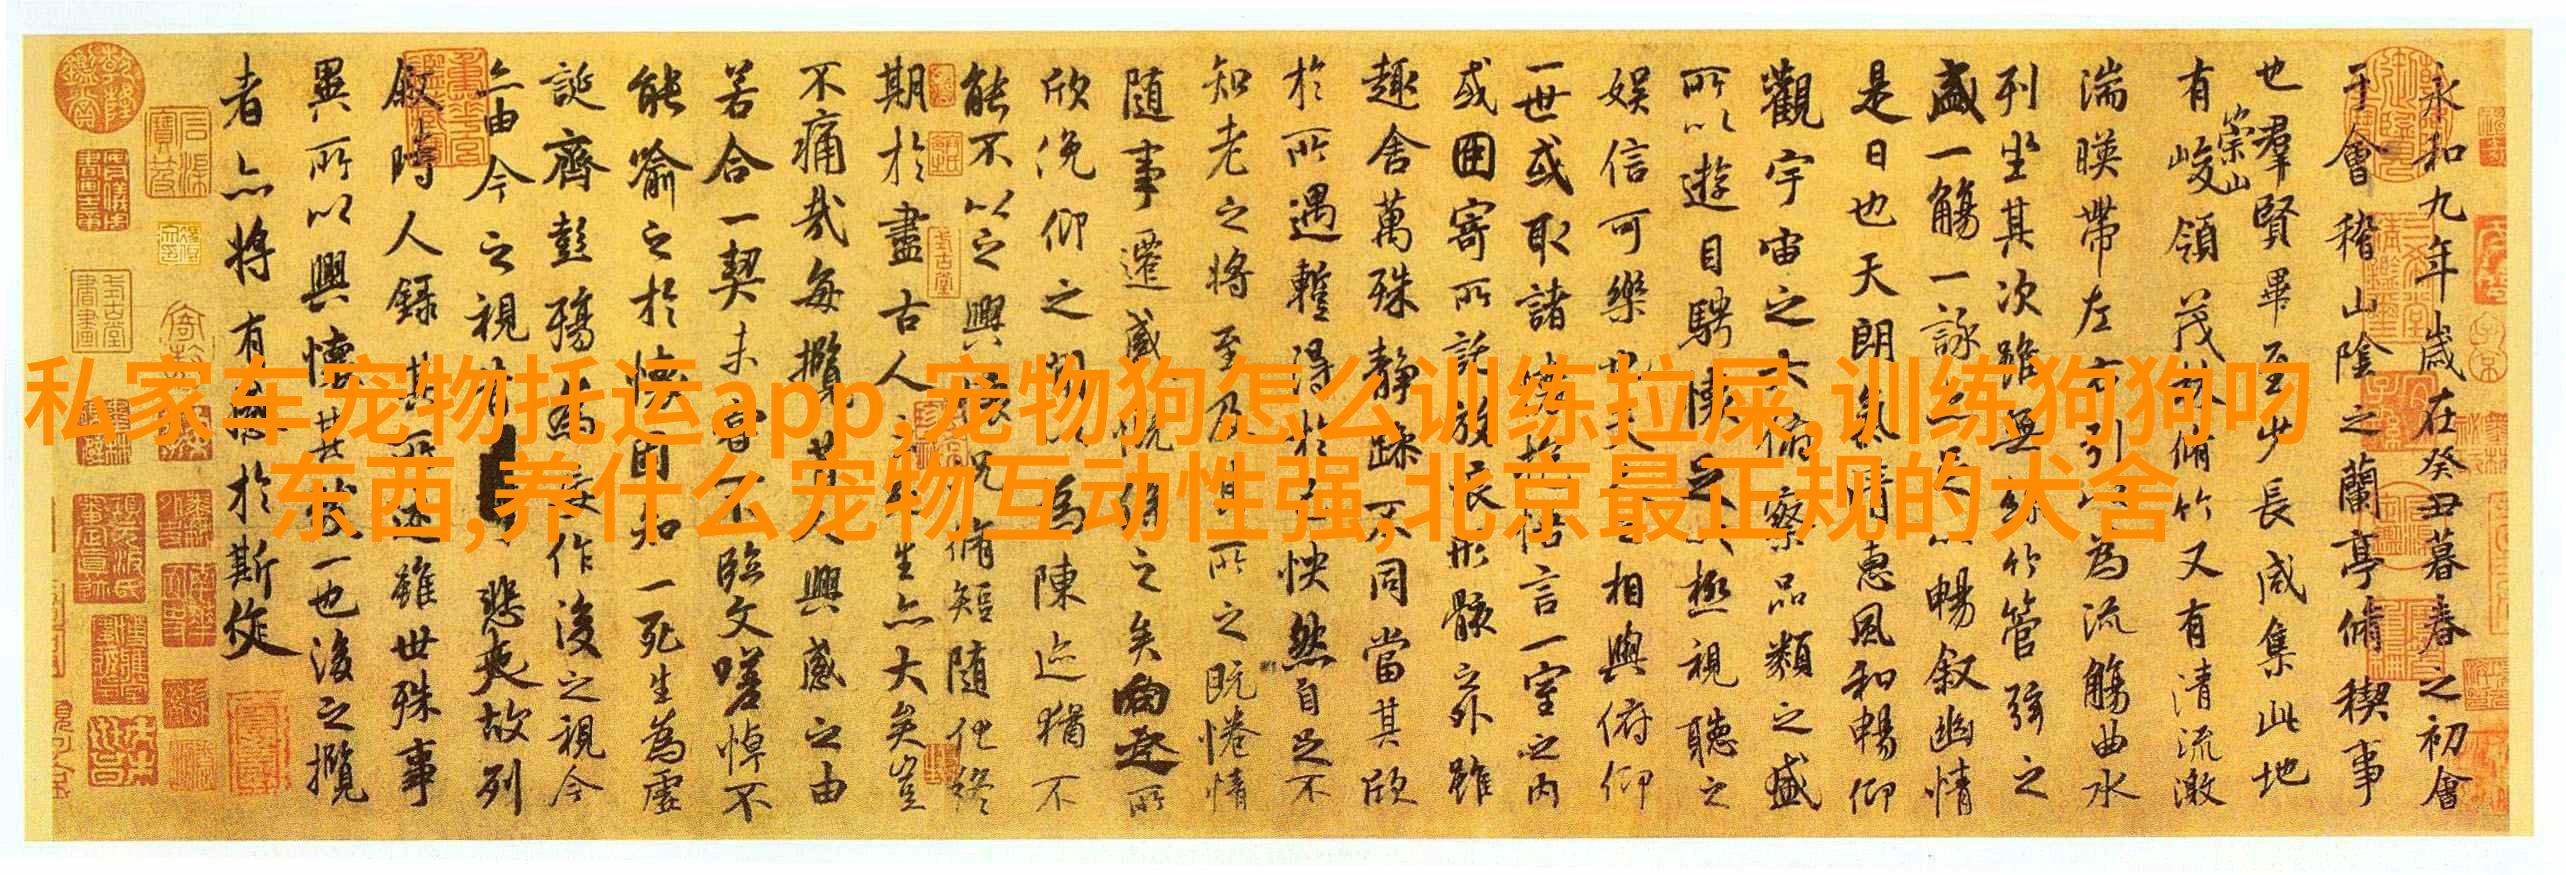 私家车宠物托运app,宠物狗怎么训练拉屎,训练狗狗叼
东西,养什么宠物互动性强,北京最正规的犬舍
永和九年歲在癸丑暮春之初會
于會稽山陰之蘭亭脩稧事
也羣賢畢至少長咸集此地
有崇山峻領茂林脩竹又有清流激
湍暎帶左右引以為流觴曲水
列坐其次雖無絲竹管弦之
盛一觴一詠亦足以暢叙幽情
是日也天朗氣清惠風和暢仰
觀宇宙之大俯察品類之盛
所以遊目騁懷足以極視聽之
娛信可樂也夫人之相與俯仰
一世或取諸懷抱悟言一室之內
或因寄所託放浪形骸之外雖
趣舍萬殊靜躁不同當其欣
於所遇暫得於己怏然自足不
知老之將至及其所之既惓情
隨事遷感慨係之矣向之所
欣俛仰之間以為陳迹猶不
能不以之興懷況脩短隨化終
期於盡古人云死生亦大矣豈
不痛哉每攬昔人興感之由
若合一契未嘗不臨文嗟悼不
能喻之於懷固知一死生為虛
誕齊彭殤為妄作後之視今
亦由今之視昔悲夫故列
叙時人錄其所述雖世殊事
異所以興懷其致一也後之攬
者亦將有感於斯文